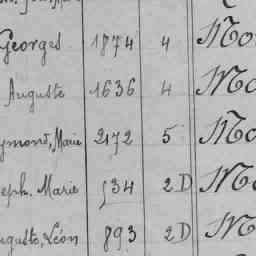 Georges 1874 4
Auguste 1636 4
ymond, Marie 2172 5
eph. Marie 534 2D
uguste, Léon 893 2D